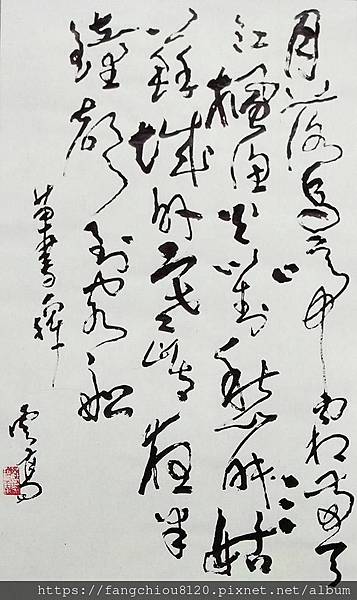 月落烏啼霜滿天
江楓漁火對愁眠姑
蘇城外寒山寺夜半
鐘聲到客船
草書禪
https://fangchiou8120.pixnet.net/album